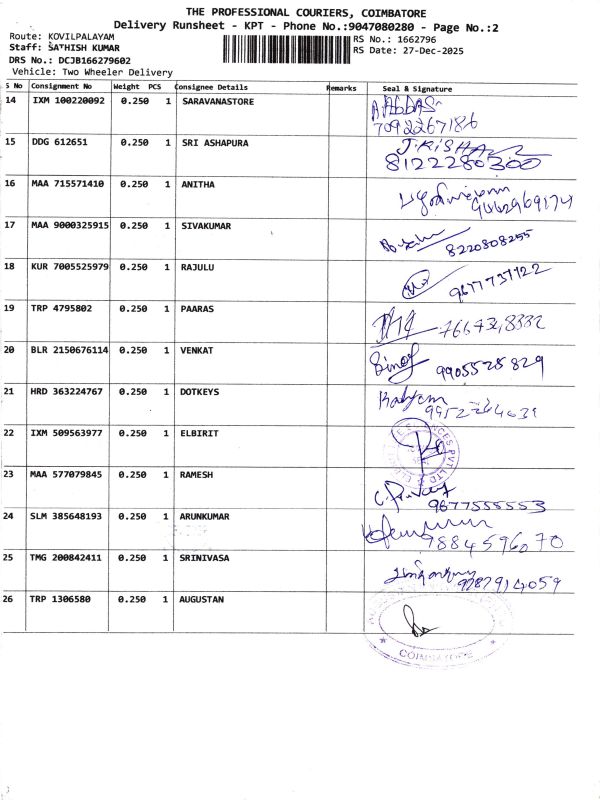 THE PROFESSIONAL COURIERS, COIMBATORE
Delivery Runsheet - KPT - Phone No.:9047080280 - Page No.:2
Route: KOVILPALAYAM RS No.: 1662796
Staff: SATHISH KUMAR RS Date: 27-Dec-2025
DRS No.: DCJB166279602
Vehicle: Two Wheeler Delivery
S No Consignment No Weight PCS Consignee Details Remarks Seal & Signature
14 IXM 100220092 0.250 1 SARAVANASTORE A.AbbAS
7092267186
15 DDG 612651 0.250 1 SRI ASHAPURA
8122280300
16 MAA 715571410 0.250 1 ANITHA
17 MAA 9000325915 0.250 1 SIVAKUMAR
8220808255
18 KUR 7005525979 0.250 1 RAJULU
9677737122
19 TRP 4795802 0.250 1 PAARAS
20 BLR 2150676114 0.250 1 VENKAT
9905528829
21 HRD 363224767 0.250 1 DOTKEYS
22 IXM 509563977 0.250 1 ELBIRIT
23 MAA 577079845 0.250 1 RAMESH
9677555553
24 SLM 385648193 0.250 1 ARUNKUMAR
9884596070
25 TMG 200842411 0.250 1 SRINIVASA
9787914059
26 TRP 1306580 0.250 1 AUGUSTAN
COIMBATORE